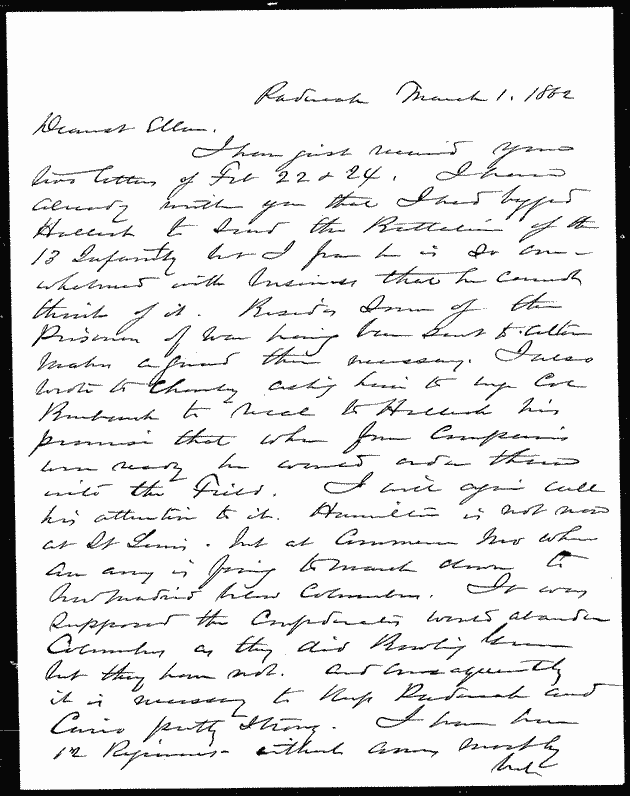 Paducah March 1. 1862
Dearest Ellen.
I have just received your
two letters of Feb 22 & 24. I have
already written you that I had begged
Halleck to send the Battalion of the
13 Infantry but I fear he is so over-
whelmed with business that he cannot
think of it. Besides some of the
Prisoners of War having been sent to Alton
makes a guard there necessary. I also
wrote to Charley asking him to urge Col
Burbank to recall to Halleck his
promise that when four Companies
were ready he would order them
into the Field. I will again call
his attention to it. Hamilton is not now
at St Louis. but at Commerce Mo where
an army is going to march down to
New Madrid below Columbus. It was
supposed the Confederates would abandon
Columbus as they did Bowling Green
but they have not. and consequently
it is necessary to keep Paducah and
Cairo pretty strong. I have here
12 Regiments - without arms mostly
but